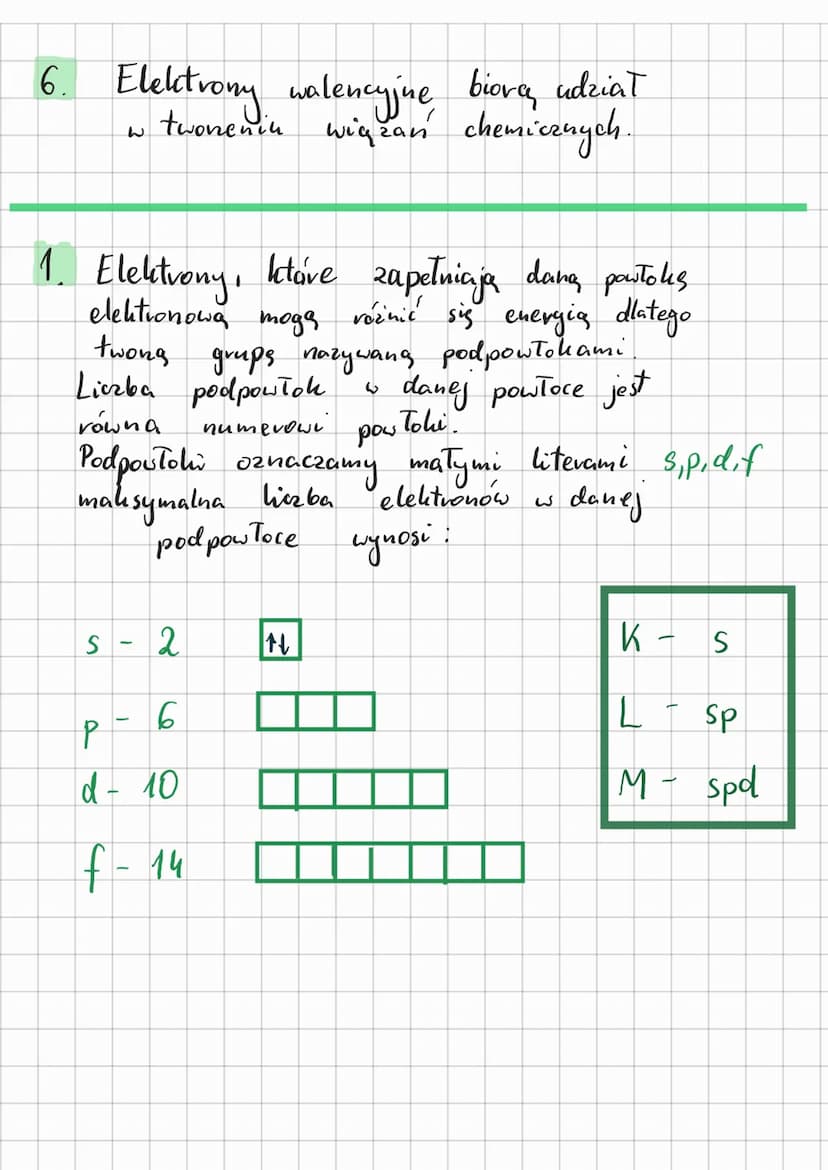 6. Elektrony walencyjne biorą udział
w tworzeniu wiązań chemicznych.
1. Elektrony, które zapełniają daną powłokę
elektronową mogą różnić się energią dlatego
tworzą grupę nazywaną podpowłokami.
Liczba podpowłok w danej powłoce jest
równa numerowi powłoki.
Podpowłoki oznaczamy małymi literami s,p,d,f
maksymalna liczba elektronów w danej
podpowłoce wynosi:
s - 2 ↑↓
p - 6
d - 10
f - 14
K - s
L - sp
M - spd